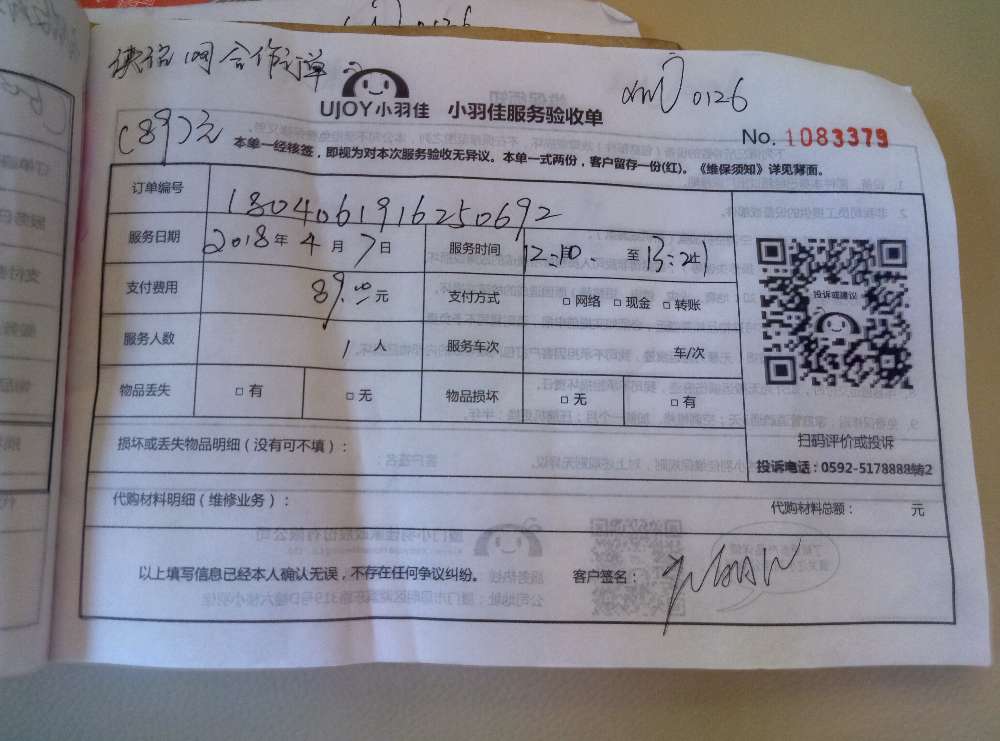 网合作订单
0126
UJOY小羽佳 小羽佳服务验收单
(89)元
No. 1083379
本单一经核签，即视为对本次服务验收无异议。本单一式两份，客户留存一份(红)。《维保须知》详见背面。
订单编号 1804061916250692
服务日期 2018年4月7日 服务时间 至
支付费用 89.00元 支付方式 □网络 □现金 □转账
投诉或建议
服务人数 1人 服务车次 车/次
物品丢失 □有 □无 物品损坏 □无 □有
损坏或丢失物品明细（没有可不填）：
扫码评价或投诉
投诉电话：0592-5178888转2
代购材料明细（维修业务）： 代购材料总额： 元
以上填写信息已经本人确认无误，不存在任何争议纠纷。 客户签名：